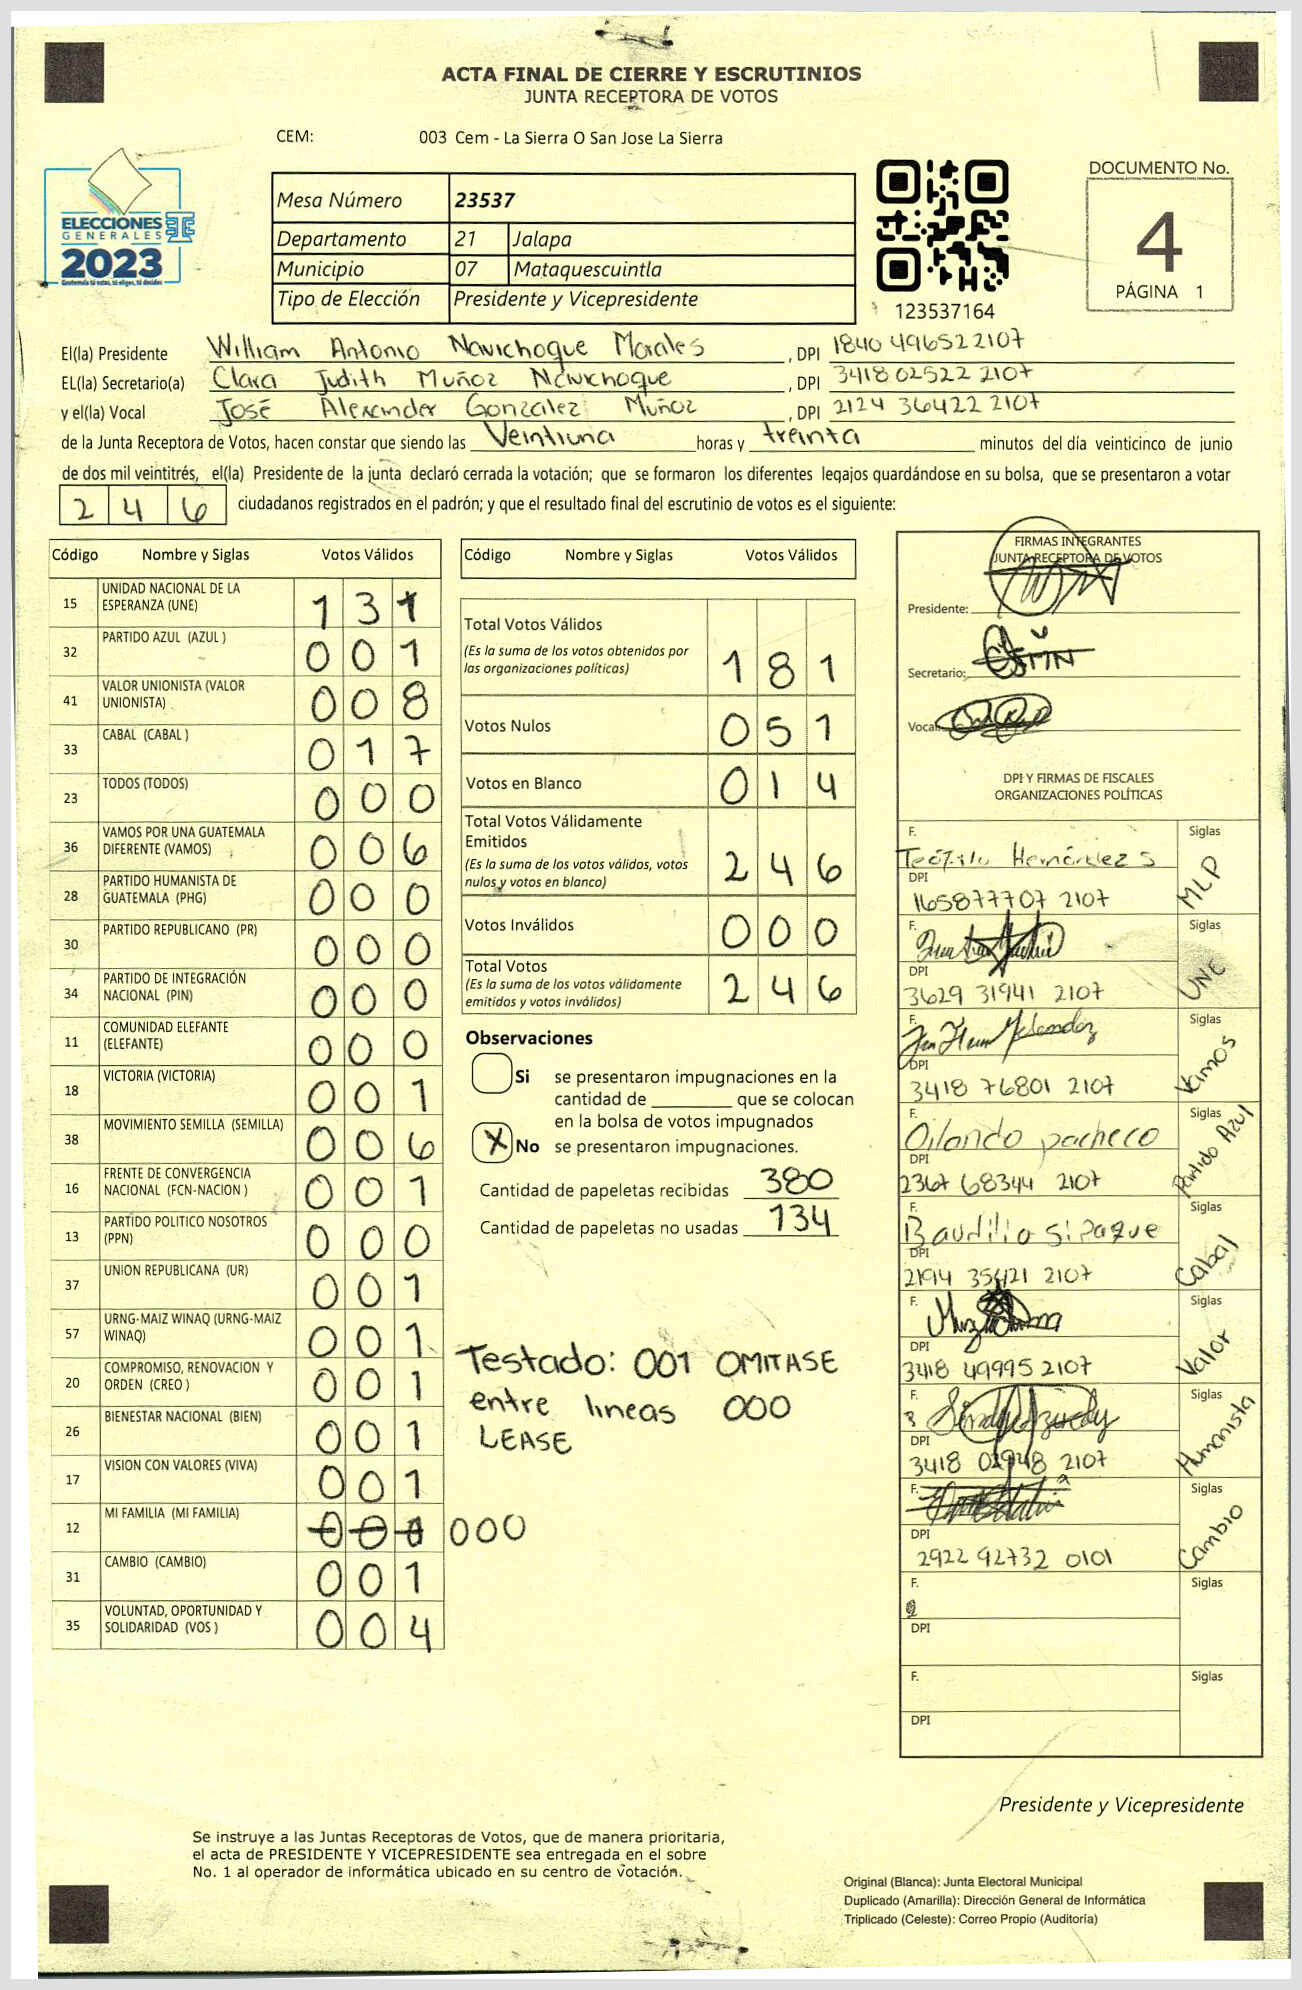 ACTA FINAL DE CIERRE Y ESCRUTINIOS
JUNTA RECEPTORA DE VOTOS
CEM: 003 Cem - La Sierra O San Jose La Sierra
ELECCIONES
GENERALES
2023
Guatemala tú votas, tú eliges, tú decides
Mesa Número 23537
Departamento 21 Jalapa
Municipio 07 Mataquescuintla
Tipo de Elección Presidente y Vicepresidente
123537164
DOCUMENTO No.
4
PÁGINA 1
El(la) Presidente William Antonio Navichoque Morales , DPI 1840 49652 2107
EL(la) Secretario(a) Clara Judith Muñoz Navichoque , DPI 3418 02522 2107
y el(la) Vocal José Alexander Gonzalez Muñoz , DPI 2124 36422 2107
de la Junta Receptora de Votos, hacen constar que siendo las Veintiuna horas y treinta minutos del día veinticinco de junio
de dos mil veintitrés, el(la) Presidente de la junta declaró cerrada la votación; que se formaron los diferentes legajos guardándose en su bolsa, que se presentaron a votar
2 4 6 ciudadanos registrados en el padrón; y que el resultado final del escrutinio de votos es el siguiente:
Código Nombre y Siglas Votos Válidos
15 UNIDAD NACIONAL DE LA ESPERANZA (UNE) 1 3 1
32 PARTIDO AZUL (AZUL ) 0 0 1
41 VALOR UNIONISTA (VALOR UNIONISTA) 0 0 8
33 CABAL (CABAL ) 0 1 7
23 TODOS (TODOS) 0 0 0
36 VAMOS POR UNA GUATEMALA DIFERENTE (VAMOS) 0 0 6
28 PARTIDO HUMANISTA DE GUATEMALA (PHG) 0 0 0
30 PARTIDO REPUBLICANO (PR) 0 0 0
34 PARTIDO DE INTEGRACIÓN NACIONAL (PIN) 0 0 0
11 COMUNIDAD ELEFANTE (ELEFANTE) 0 0 0
18 VICTORIA (VICTORIA) 0 0 1
38 MOVIMIENTO SEMILLA (SEMILLA) 0 0 6
16 FRENTE DE CONVERGENCIA NACIONAL (FCN-NACION ) 0 0 1
13 PARTIDO POLITICO NOSOTROS (PPN) 0 0 0
37 UNION REPUBLICANA (UR) 0 0 1
57 URNG-MAIZ WINAQ (URNG-MAIZ WINAQ) 0 0 1
20 COMPROMISO, RENOVACION Y ORDEN (CREO ) 0 0 1
26 BIENESTAR NACIONAL (BIEN) 0 0 1
17 VISION CON VALORES (VIVA) 0 0 1
12 MI FAMILIA (MI FAMILIA) 0 0 1 000
31 CAMBIO (CAMBIO) 0 0 1
35 VOLUNTAD, OPORTUNIDAD Y SOLIDARIDAD (VOS ) 0 0 4
Código Nombre y Siglas Votos Válidos
Total Votos Válidos
(Es la suma de los votos obtenidos por las organizaciones políticas) 1 8 1
Votos Nulos 0 5 1
Votos en Blanco 0 1 4
Total Votos Válidamente Emitidos
(Es la suma de los votos válidos, votos nulos y votos en blanco) 2 4 6
Votos Inválidos 0 0 0
Total Votos
(Es la suma de los votos válidamente emitidos y votos inválidos) 2 4 6
Observaciones
Si se presentaron impugnaciones en la
cantidad de ________ que se colocan
en la bolsa de votos impugnados
X No se presentaron impugnaciones.
Cantidad de papeletas recibidas 380
Cantidad de papeletas no usadas 134
Testado: 001 OMITASE
entre lineas 000
LEASE
FIRMAS INTEGRANTES
JUNTA RECEPTORA DE VOTOS
Presidente:
Secretario:
Vocal
DPI Y FIRMAS DE FISCALES
ORGANIZACIONES POLÍTICAS
F. Teófilo Hernández S Siglas MLP
DPI 165877707 2107
F. Siglas UNE
DPI 3629 31941 2107
F. Siglas Vamos
DPI 3418 76801 2107
F. Orlando pacheco Siglas Partido Azul
DPI 2367 68344 2107
F. Baudilio Sipaque Siglas Cabal
DPI 2194 35421 2107
F. Siglas Valor
DPI 3418 49995 2107
F. Siglas Humanista
DPI 3418 02948 2107
F. Siglas Cambio
DPI 2922 92732 0101
F. Siglas
DPI
F. Siglas
DPI
Presidente y Vicepresidente
Se instruye a las Juntas Receptoras de Votos, que de manera prioritaria,
el acta de PRESIDENTE Y VICEPRESIDENTE sea entregada en el sobre
No. 1 al operador de informática ubicado en su centro de votación.
Original (Blanca): Junta Electoral Municipal
Duplicado (Amarilla): Dirección General de Informática
Triplicado (Celeste): Correo Propio (Auditoría)